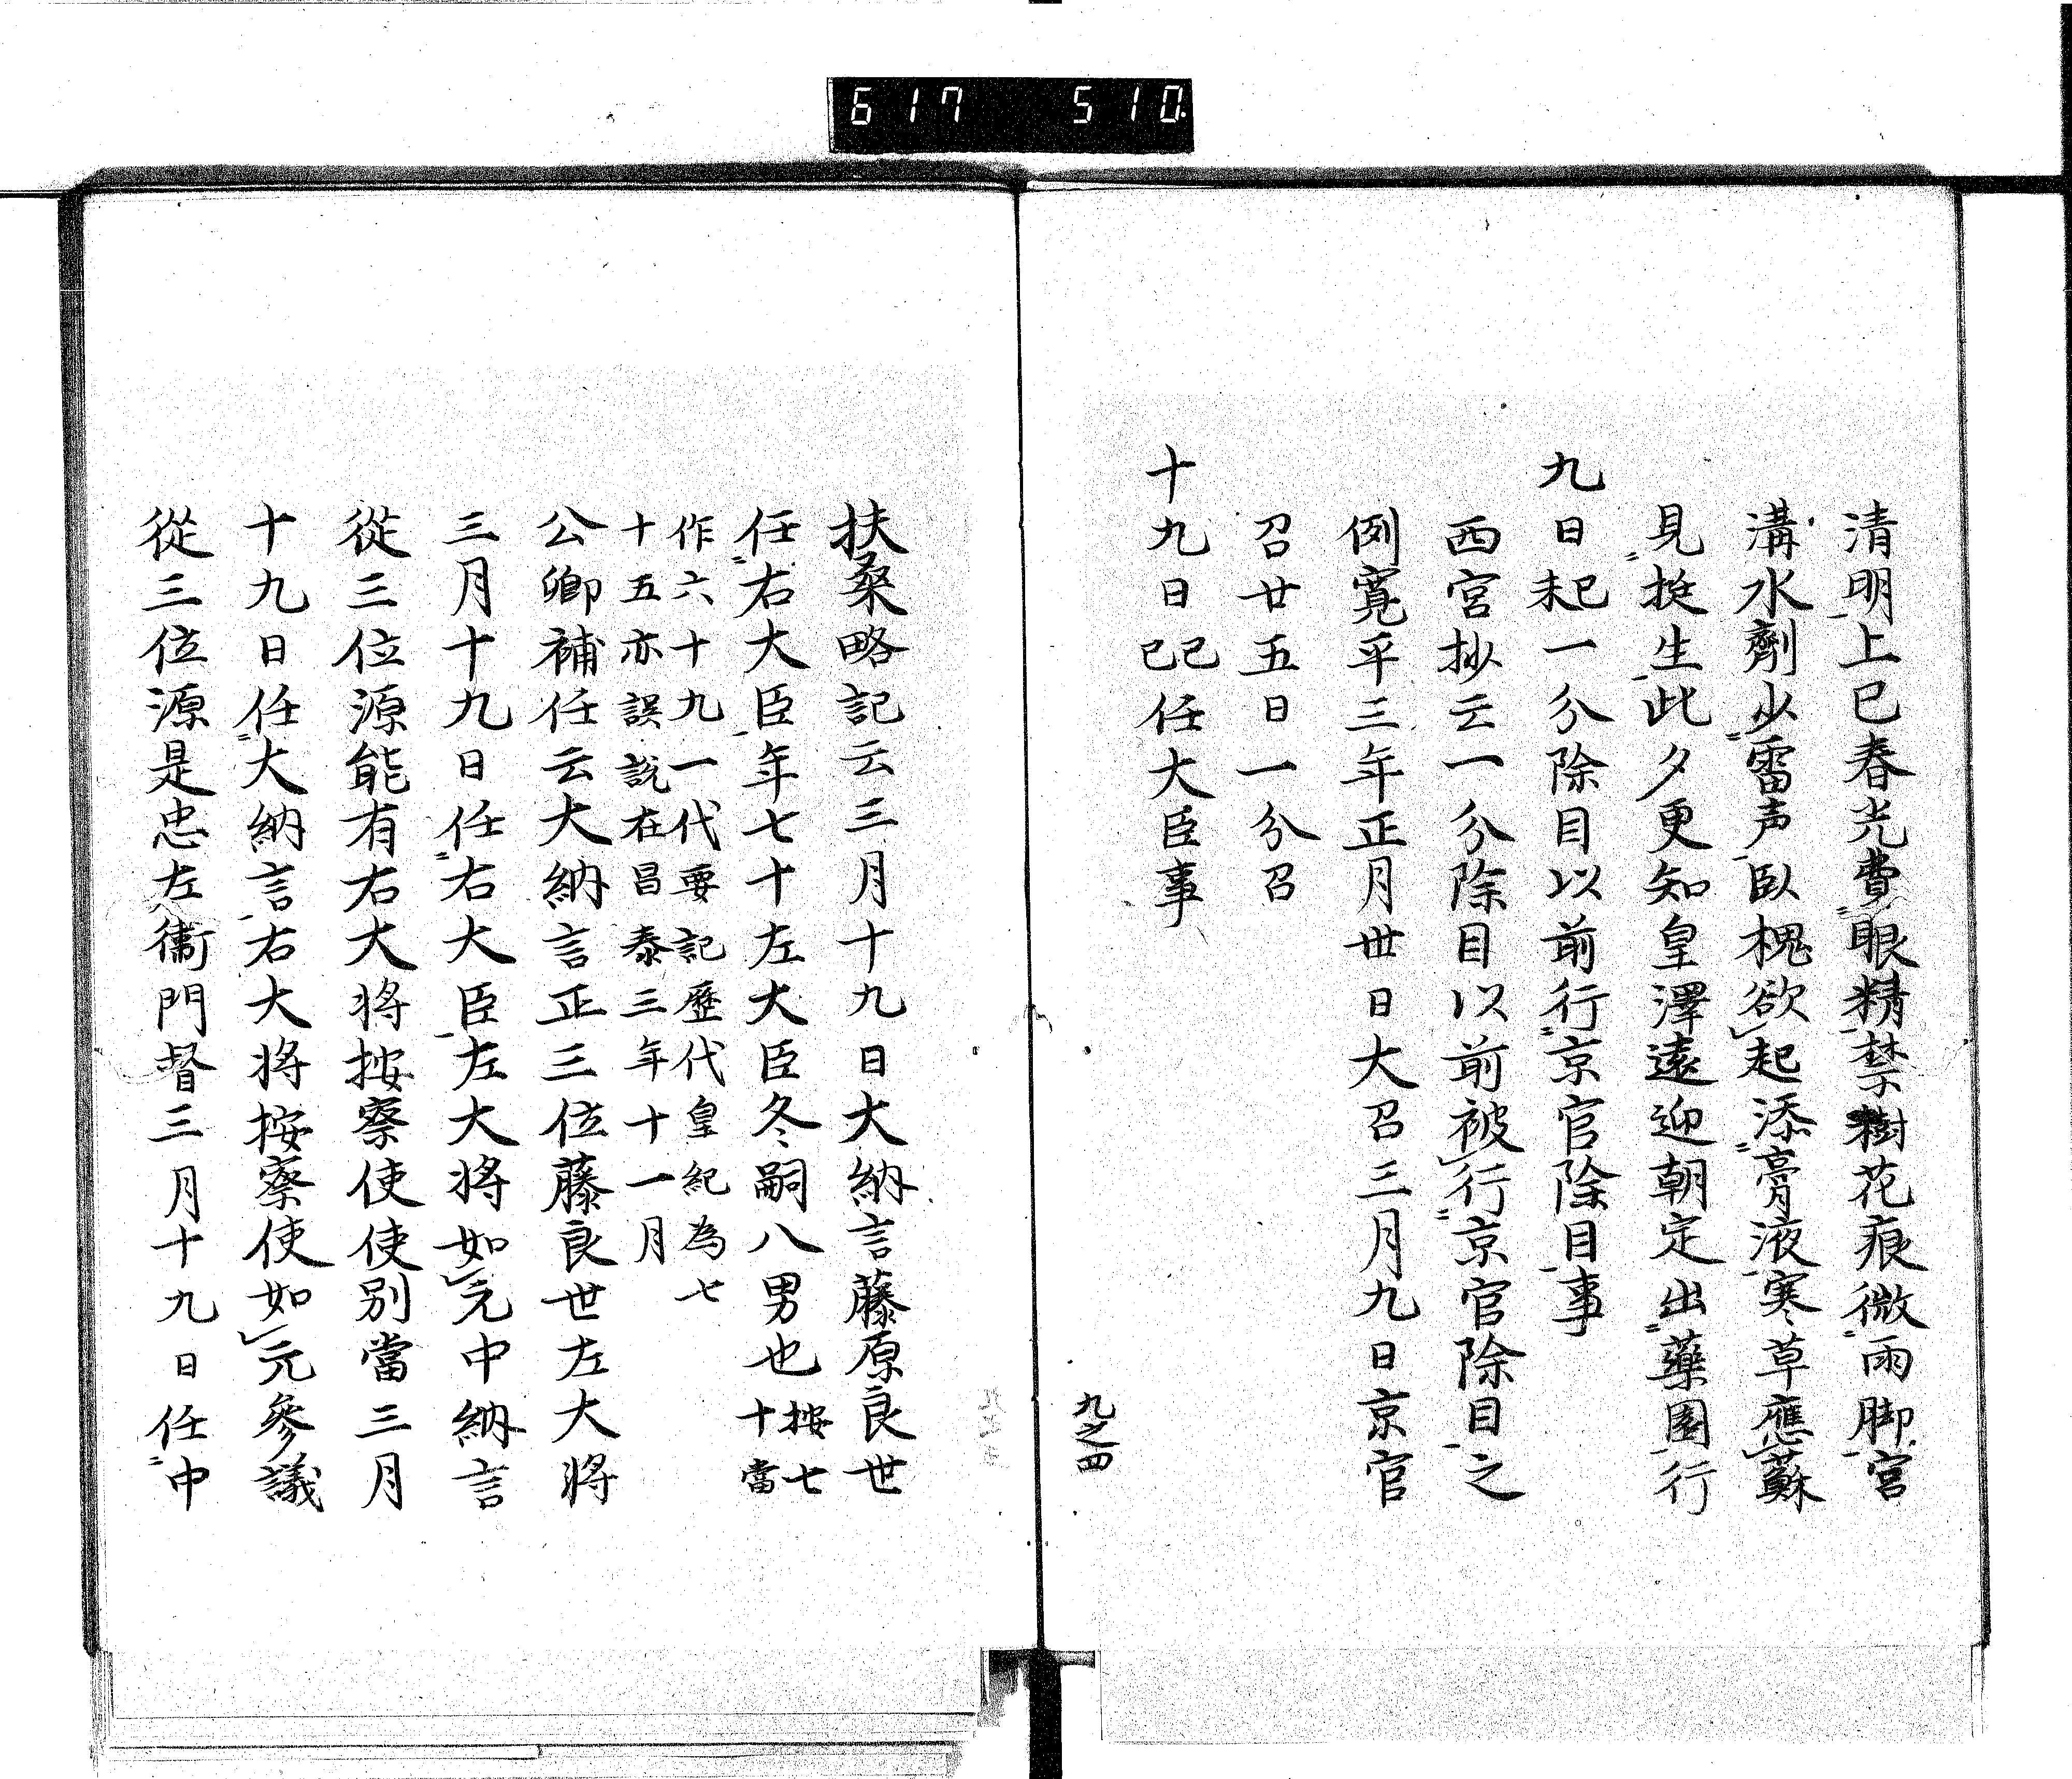 617 510
清明上巳春光費眼精禁樹花痕微雨脚宮
溝水劑少雷声臥槐欲起添膏液寒草應蘇
見挻生此夕更知皇澤遠迎朝定出藥園行
九日己未一分除目以前行京官除目事
西宮抄云一分除目以前被行京官除目之
例寛平三年正月丗日大召三月九日京官
召廿五日一分召
十九日己巳任大臣事
九之四
扶桑略記云三月十九日大納言藤原良世
任右大臣年七十左大臣冬嗣八男也按七十當
作六十九一代要記歷代皇紀為七
十五亦誤説在昌泰三年十一月
公卿補任云大納言正三位藤良世左大将
三月十九日任右大臣左大将如元中納言
從三位源能有右大将按察使使別當三月
十九日任大納言右大将按察使如元參議
從三位源是忠左衞門督三月十九日任中